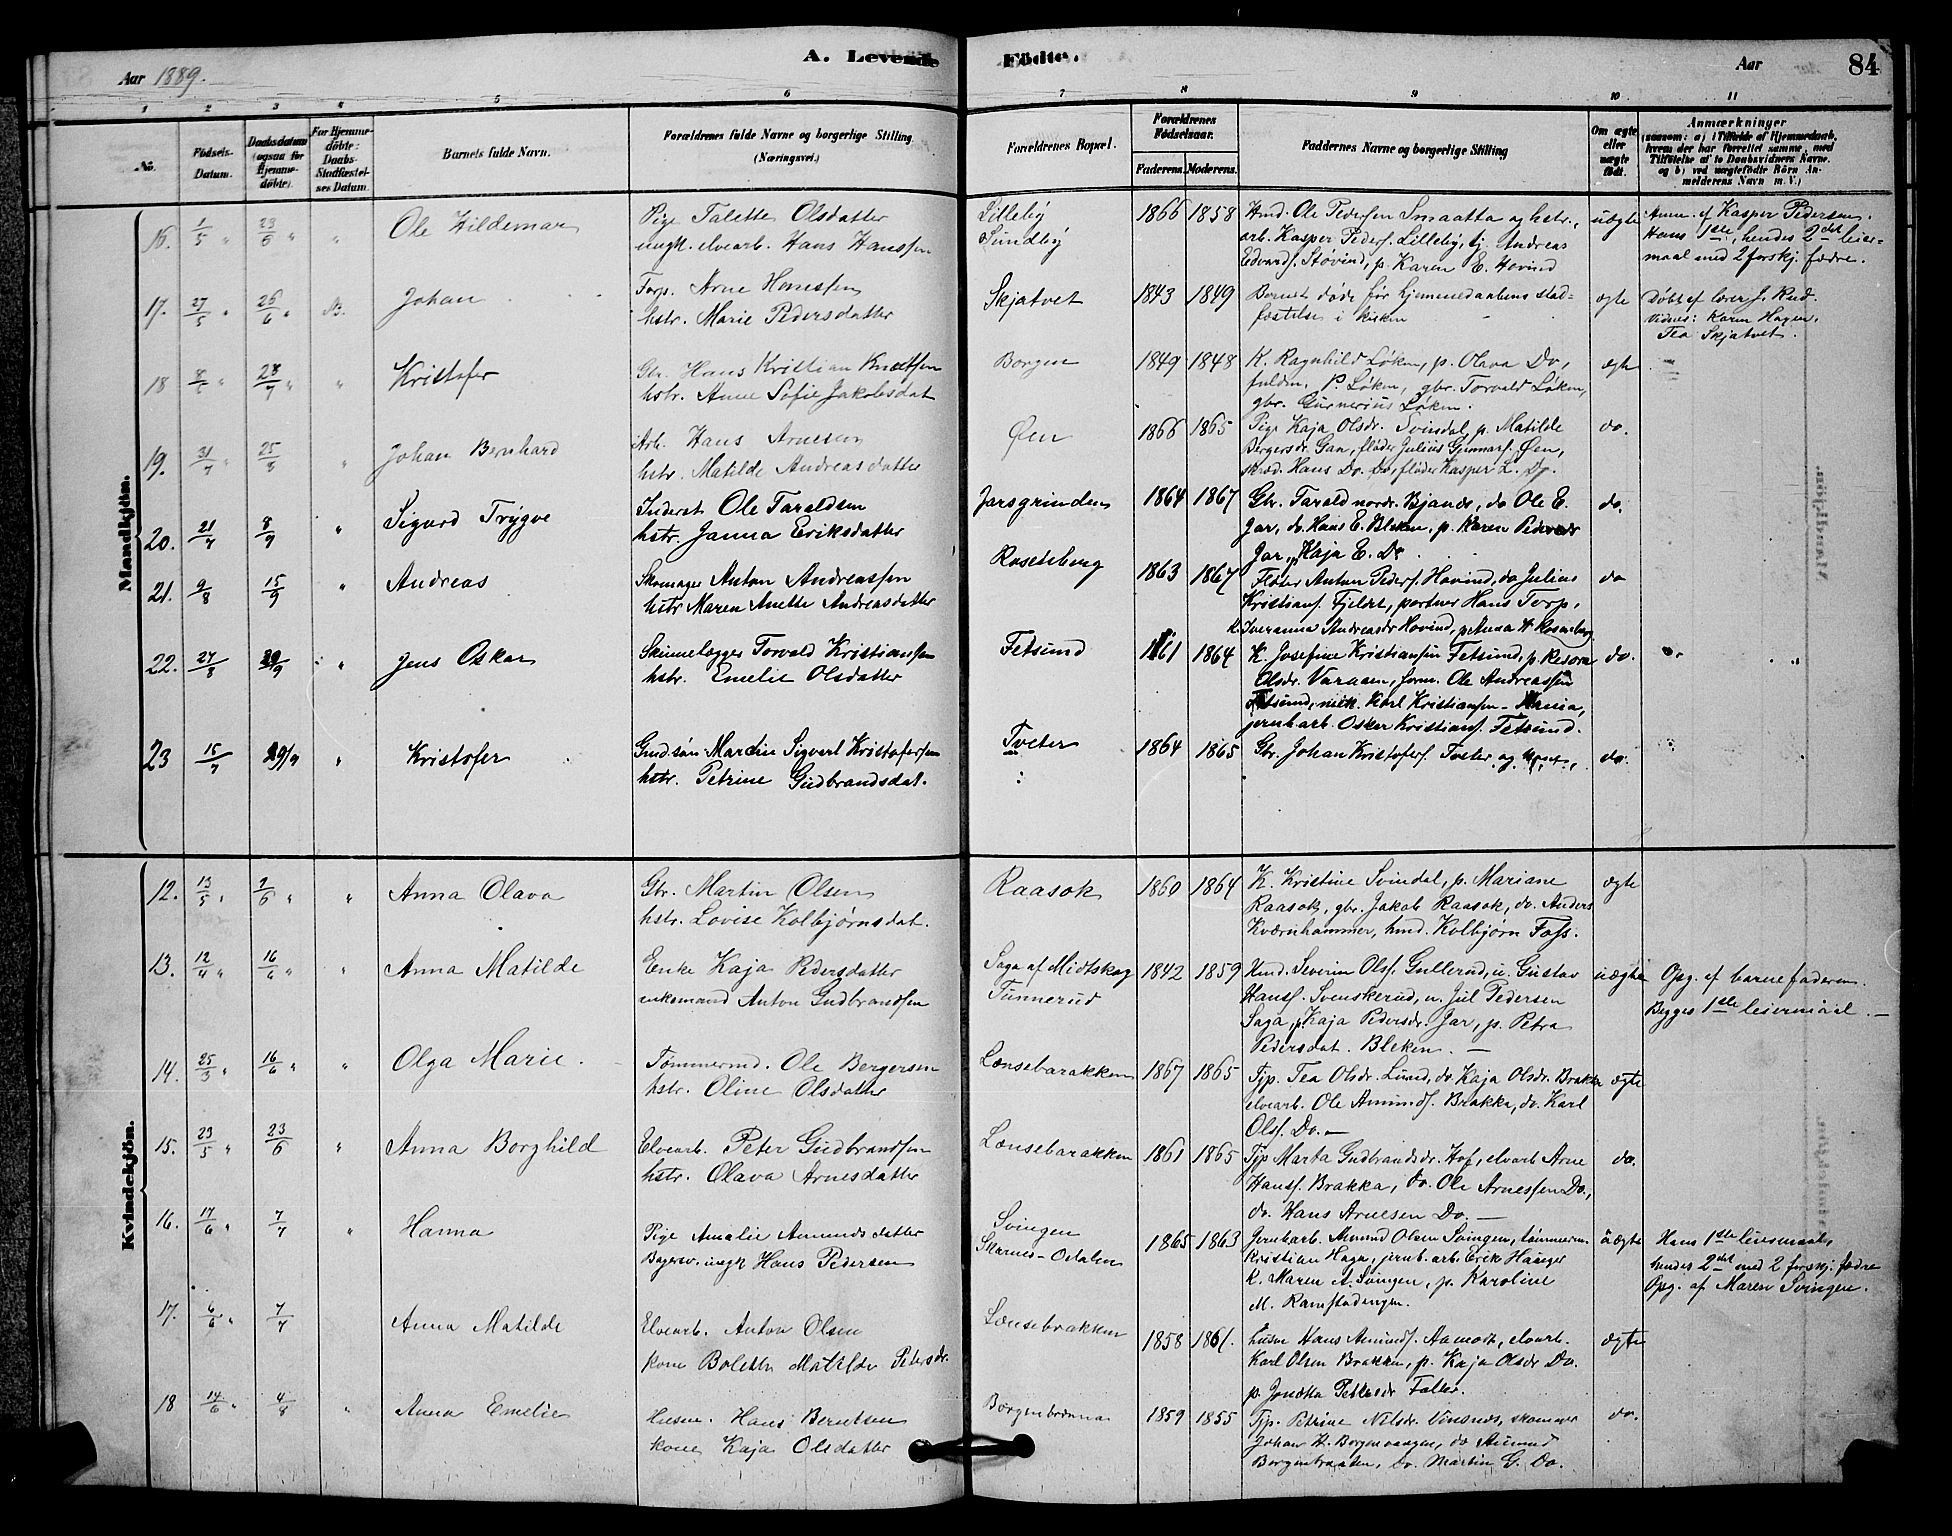 Aar 1889.
A. Levende Födte.
Aar
84
1 2 3 4 5 6 7 8 9 10 11
No.
Födsels-Datum.
Daabsdatum (ogsaa for Hjemme-döbte).
For Hjemme-döbte: Daabs-Stadfæstelses Datum.
Barnets fulde Navn.
Forældrenes fulde Navne og borgerlige Stilling (Næringsvei.)
Forældrenes Bopæl.
Forældrenes Fødselsaar.
Faderens. Moderens.
Faddernes Navne og borgerlige Stilling
Om ægte eller uægte födt.
Anmærkninger
(saasom: a) i Tilfælde af Hjemmedaab, hvem der har forrettet samme, med Tilføielse af to Daabsvidners Navne, og b) ved uægtefödte Börn Anmelderens Navn m. V.)
Mandkjön.
16. 1/5 " 23/6 " " Ole Hildemar
Pige Talette Olsdatter
ungk. elvearb. Hans Hanssen
Lilleby
Sundby
1866 1858
Hmd. Ole Pedersen Smaatta og hstr.,
arb. Kasper Peders. Lilleby, tj. Andreas
Edvards. Støvind, p. Karen E. Hovind
uægte
Anm. af Kasper Pedersen.
Hans 1ste, hendes 2det leier-
maal med 2 forskj. fædre.
17. 27/5 " 26/6 " Johan
Torp. Arne Hanssen
hstr. Marie Pedersdatter
Skjatvet
1843 1849
Barnet døde før hjemmedaabens stad-
fæstelse i kirken
ægte
Døbt af lærer J. Rud.
Vidner: Karen Hagen,
Tea Skjatvet.
18 8/5 " 28/7 " " Kristofer
Gbr. Hans Kristian Knudsen
hstr. Anne Sofie Jakobsdat
Borgen
1849 1848
K. Ragnhild Løken, p. Olava Do,
fuldm. P. Løken, gbr. Torvald Løken,
gbr. Gunerius Løken.
ægte
19. 31/7 " 25/8 " Johan Bernhard
Arb. Hans Arnesen
hstr. Matilde Andreasdatter
Øen
1866 1865
Pige Kaja Olsdr. Svindal, p. Matilde
Bergersdr. Gan, fløder Julius Gunnars. Øen,
skræd. Hans Do. Do, fløder Kasper L. Do.
do.
20. 21/7 8/9 " Sigurd Trygve
Inderst Ole Taraldsen
hstr. Janna Eriksdatter
Jarsgrinden
1864 1867
Gbr. Tarald nordr. Bjanes, do Ole E.
Jar, do. Hans E. Bleken, p. Karen Pedersdr
Jar, p. Kaja E. Do
do.
21. 9/8 15/9 " Andreas
Skomager Anton Andreassen
hstr Maren Anette Andreasdatter
Rosenberg
1863 1867
Fløder Anton Peders. Hovind, do Julius
Kristians. Fjeldt, portner Hans Torp,
k. Iveranna Andreasdr Hovind, p. Anna H. Rosenberg
do
22. 27/8 29/9 " Jens Oskar
Skinnelægger Torvald Kristiansen
hstr. Emelie Olsdatter
Fetsund
1861 1864
K. Josefine Kristiansen Fetsund, p.
Olsdr. Varaaen, form. Ole Andreassen
Fetsund, Karl Kristiansen
jernbarb. Oskar Kristians. Fetsund.
do.
23 15/7 29/9 " Kristofer
Grdsøn Martin Sigvert Kristofersen
hstr. Petrine Gudbrandsdat.
Tveter
1864 1865
Gbr. Johan Kristofers. Tveter og
do.
Kvindekjön.
12. 13/5 " 9/6 " " Anna Olava
Gbr. Martin Olsen
hstr. Lovise Kolbjørnsdat.
Raasok
1860 1864
K. Kristine Svindal, p. Mariane
Raasok, gbr. Jakob Raasok, do. Anders
Kværnhammer, hmd. Kolbjørn Foss.
ægte
13. 12/4 " 16/6 " " Anna Matilde
Enke Kaja Pedersdatter
enkemand Anton Gudbrandsen
Saga af Midtskog
Tunnerud
1842 1859
Hmd. Severin Ols. Gullerud, u. Gustav
Hans. Svenskerud, u. Jul Pedersen
Saga, p. Kaja Pedersdr. Jar, p. Petra
Pedersdat. Bleken. —
uægte
Opg. af barnefaderen.
Begges 1ste leiermaal. —
14. 25/3 " 16/6 " " Olga Marie.
Tømmermd. Ole Bergersen
hstr. Oline Olsdatter
Lænsebarakken
1867 1865
Tjp. Tea Olsdr. Lund, do. Kaja Olsdr. Brakka
elvearb. Ole Amunds. Brakka, do. Karl
Ols. Do. —
ægte
15. 23/5 " 23/6 " Anna Borghild
Elvearb. Peter Gudbrandsen
hstr. Olava Arnesdatter
Lænsebarakken
1861 1865
Tjp Marta Gudbrandsdr. Hof, elvarb Arne
Hans. Brakka, do. Ole Arnessen Do.,
do. Hans Arnesen Do. —
do.
16. 17/6 " 7/7 " Hanna
Pige Amalie Amundsdatter
Bagersv. ungk Hans Pedersen
Svingen
Skarnes-Odalen
1865 1863
Jernbarb. Amund Olsen Svingen, tømmerm.
Kristian Haga, jernb. arb. Erik Hauger
k. Maren A. Svingen, p. Karoline
M. Ramstadengen.
uægte
Hans 1ste leiermaal,
hendes 2det med 2 forskj. fædre
Opg. af Maren Svingen.
17. 6/6 " 7/7 Anna Matilde
Elvearb. Anton Olsen
kone Bolette Matilde Petersdr.
Lænsebrakken
1858 1861.
Husm Hans Amunds. Aamodt, elvarb.
Karl Olsen Brakken, p. Kaja Olsdr Do.
p. Petersdr
ægte
18 14/6 " 4/8 " Anna Emelie
Husm. Hans Berntsen
kone Kaja Olsdatter
Borgenbrænna
1859 1855
Tjp. Petrine Nilsdr. Vinsnes, skomager
Johan H. Borgenvangen, do Amund
Borgenbraaten, do. Martin G. Do.
do.